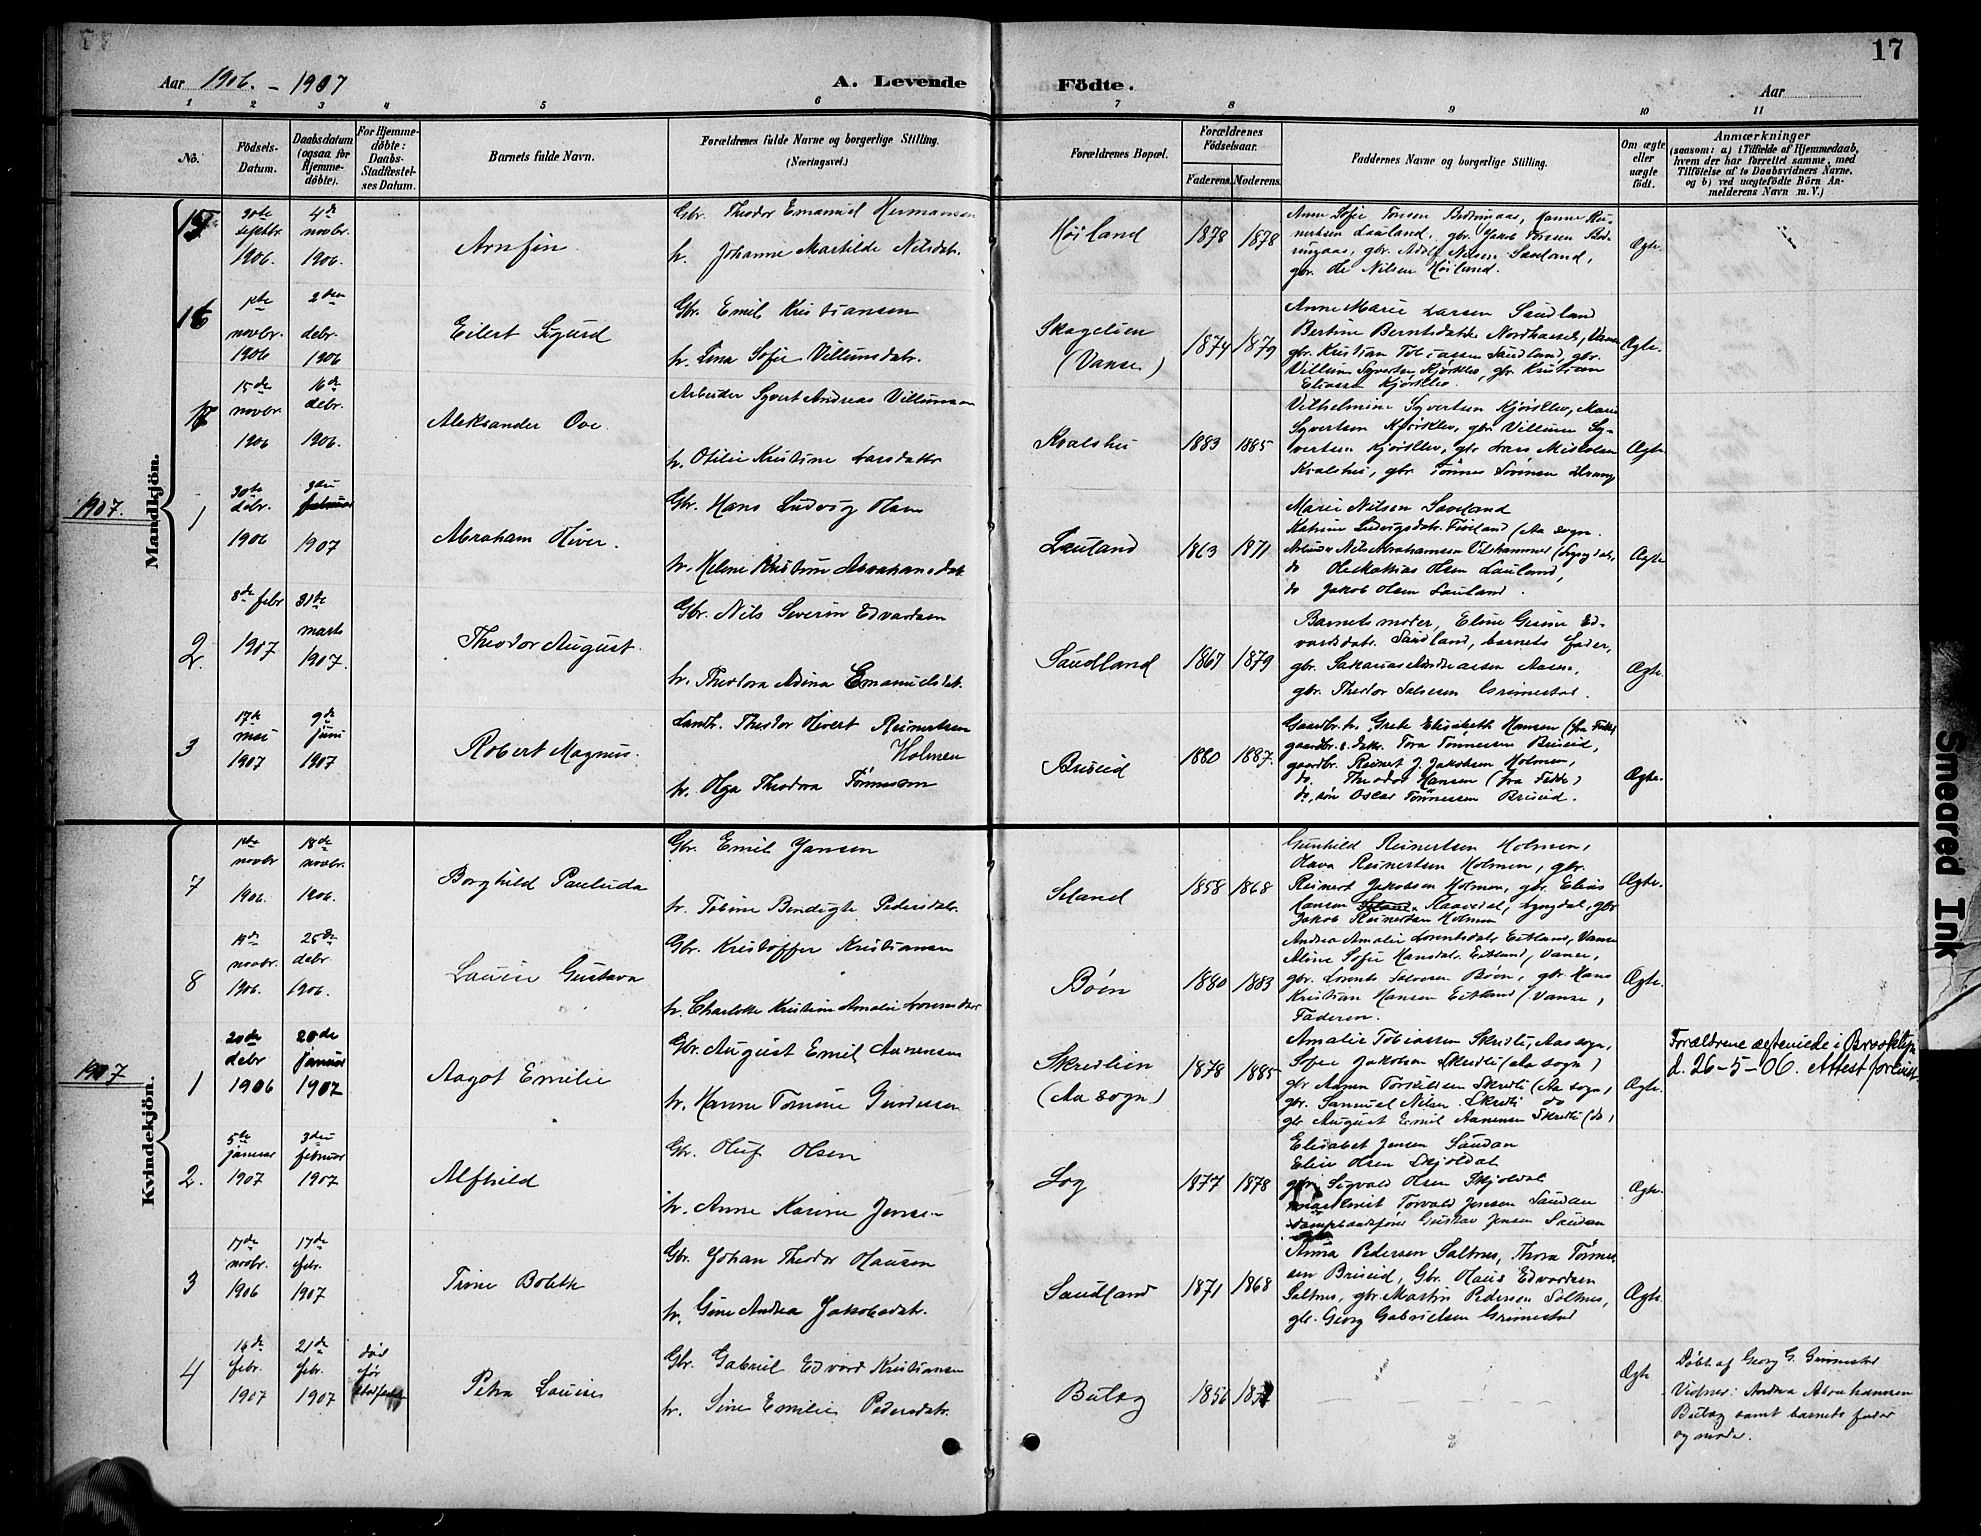 17
Aar 1906. - 1907
A. Levende Födte.
Aar
1 2 3 4 5 6 7 8 9 10 11
No.
Födsels-Datum.
Daabsdatum (ogsaa for Hjemmedöbte).
For Hjemmedöbte: Daabs-Stadfæstelses Datum.
Barnets fulde Navn.
Forældrenes fulde Navne og borgerlige Stilling. (Næringsvei.)
Forældrenes Bopæl.
Forældrenes Födselsaar.
Faderens. Moderens.
Faddernes Navne og borgerlige Stilling.
Om ægte eller uægte födt.
Anmærkninger
(saasom: a) i Tilfælde af Hjemmedaab, hvem der har forrettet samme, med Tilföielse af to Daabsvidners Navne, og b) ved uægtefödte Börn Anmelderens Navn m. V.)
Mandkjön.
15
30te septbr. 1906.
4de novbr. 1906.
Arnfin
Gbr. Theodor Emanuel Hermansen
h. Johanne Martilde Nilsdatr.
Höiland
1878 1878
Anne Sofie Tönsen Bedringaas, Hanne Reinertsen Lauland, gbr. Jakob Tönsen Bedringaas, gbr. Adolf Nilsen Sandland,
gbr. Ole Nilsen Höiland.
Ægte.
16
1ste novbr. 1906
2den debr. 1906
Eilert Sigurd
Gbr. Emil Kristiansen
h. Lina Sofie Villumsdatr.
Skagelien (Vanse)
1874 1879
Anne Marie Larsen Saudland
Bertine Berntsdatter Nordhassel, Vanse
gbr. Kristian Tobiassen Saudland, gbr.
Villum Syvertsen Kjörklev, gbr Kristian
Eliassen Kjörklev.
Ægte.
17
15de novbr. 1906
16de debr. 1906.
Aleksander Ove.
Arbeider Syvert Andreas Villumsen
h. Otilie Kristine Larsdattr
Kvalshei
1883 1885
Vilhelmine Syvertsen Kjörklev, Marie
Syvertsen Kjörklev, gbr Villum Syvertsen Kjörklev, gbr Lars
Kvalshei, gbr Tönnes
Ægte
1907.
1
30te debr. 1906
3die februar 1907
Abraham Oliver.
Gbr. Hans Ludvig Olsen
h. Helene Kristine Abrahamsdatr.
Lauland
1863 1871
Marie Nilsen Sandland
Katrine Ludvigsdatr. (Aa sogn.
Arbeider Nils Abrahamsen (Lyngdal,
do Ole Mathias Olsen Lauland,
do Jakob Olsen Lauland.
Ægte
2.
8de febr 1907
31te marts 1907.
Theodor August.
Gbr. Nils Severin Edvardsen
h. Theodora Adina Emanuelsdat.
Saudland
1867 1879
Barnets moder, Eline Gurine Edvardsdatr. Saudland, barnets fader,
gbr. Sakarias Andreassen Aasen,
gbr. Theodor Salvesen Grimestad.
Ægte.
3
17de mai 1907
9de juni 1907
Robert Magnus.
Landh. Theodor Olivert Reinertsen Holmen
h. Olga Theodora Tönnessen
Briseid
1880 1887.
Gaardbr. h. Grete Elisabeth Hansen (fra Fedde)
gaardbr. datr. Tora Tönnessen Briseid,
gaardbr. Reinert J. Jakobsen Holmen,
do. Theodor Hansen (fra Fedde)
do, sön Oscar Tönnessen Briseid.
Ægte.
Kvindekjön.
7
1ste novbr 1906.
18de novbr. 1906.
Borghild Paulinda
Gbr. Emil Jansen
h. Tobine Bendigte Pedersdatr.
Seland
1858 1868
Gunhild Reinertsen Holmen,
Olava Reinertsen Holmen, gbr.
Reinert Jakobsen Holmen, gbr. Elias
Hansen Lyngdal, gbr
Jakob Reinertsen Holmen
Ægte.
8
19de novbr. 1906.
25de debr. 1906.
Lauise Gustava
Gbr. Kristoffer Kristiansen
h. Charlotte Kristine Amalie Lorensdatr
Böen
1880 1883
Andrea Amalie Lorentsdatr Eitland, Vanse
Aline Sofie Hansdatr. Eitland, Vanse,
gbr. Lorents Salvesen Böen, gbr. Hans
Kristian Hansen Eitland (Vanse,
Faderen.
Ægte.
1907
1
20de debr 1906
20de januar 1907
Aagot Emilie
Gbr. August Emil Aanensen
h. Hanne Tomine Gundersen
Skredlien (Aa sogn)
1878 1885
Amalie Tobiassen Skredli, Aa sogn,
Sofie Jakobsen Skredli (Aa sogn)
gbr Aanen Torkelsen Skredli (Aa sogn,
gbr. Samuel Nilsen Skredli do
gbr August Emil Aanensen Skredli (do)
Ægte.
Forældrene ægteviede i Brooklyn
d. 26-5-06. Attest forevist.
2.
5te januar 1907
3die februar 1907
Alfhild
Gbr. Oluf Olsen
h. Anne Karine Jensen
Log
1877 1878
Elisabet Jensen Saudan
Elise Olsen Skjoldal
gbr Sigvald Olsen Skjoldal
Torvald Jensen Saudan
Gustav Jensen Saudan
Ægte.
3
17de novbr. 1906
17de febr. 1907
Tine Bolette
Gbr. Johan Theodor Hansen
h. Gine Andrea Jakobsdatr.
Saudland
1871 1868
Anna Pedersen Saltnes, Thora Tönnessen Briseid, Gbr. Hans Edvardsen
Saltnes, gbr Martin Pedersen Saltnes,
gbr. Georg Gabrielsen Grimestad
Ægte.
4
16de febr. 1907
21de febr. 1907
död för
Petra Louise
Gbr. Gabriel Edvard Kristiansen
h. Sine Emilie Pedersdatr.
Butog
1856
Ægte
Döbt af Georg G. Grimestad
Vidner: Andrea Abrahamsen
Butog samt barnets fader
og moder.
Smeared Ink